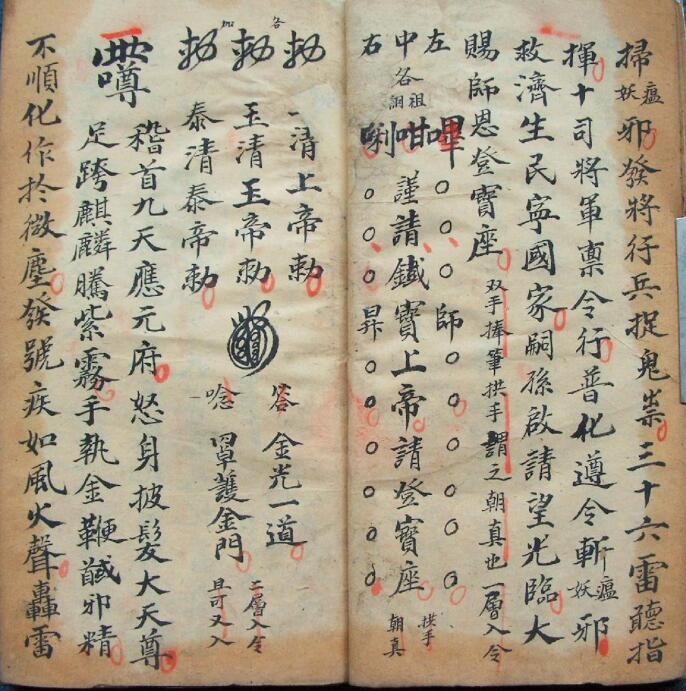 掃瘟妖邪發將行兵捉鬼祟三十六雷聽指
揮十司將軍禀令行普化遵令斬瘟妖邪
救濟生民寧國家嗣孫啟請望光臨大
賜師恩登寶座双手捧筆拱手謂之朝真也一層入令
左嗶○○○○師○○○○○○
中各祖詞咁謹請鐵寶上帝請登寶座拱手朝真
右唎○○○昇○○○○○○
各勅一清上帝勅答金光一道
加勅玉清玉帝勅唸罩護金門二層入令且可又入
勅泰清泰帝勅
稽首九天應元府怒身披髮大天尊
足跨麒麟騰紫霧手執金鞭馘邪精
不順化作於微塵發號疾如風火聲轟雷